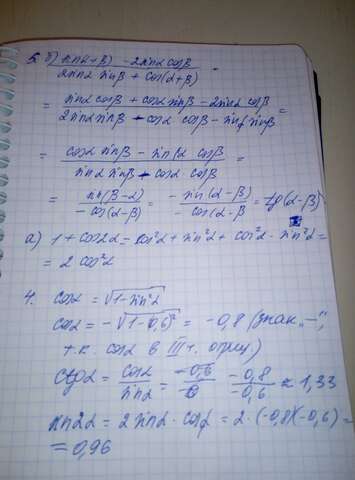 5. б) sin(α+β) - 2sinα cosβ / 2sinα sinβ + cos(α+β) =
= sinα cosβ + cosα sinβ - 2sinα cosβ / 2sinα sinβ + cosα cosβ - sinα sinβ =
= cosα sinβ - sinα cosβ / sinα sinβ + cosα cosβ =
= sin(β-α) / -cos(α-β) = -sin(α-β) / -cos(α-β = tg(α-β)
а) 1 + cos2α = cos²α + sin²α + cos²α - sin²α =
= 2 cos²α
4. cosα = √1-sin²α
cosα = -√(1-0,6)² = -0,8 (знак „-“,
т.к. cosα в III ч. отриц)
ctgα = cosα / sinα = -0,8 / -0,6 ≈ 1,33
sin2α = 2 sinα · cosα = 2·(-0,8)(-0,6) =
= 0,96